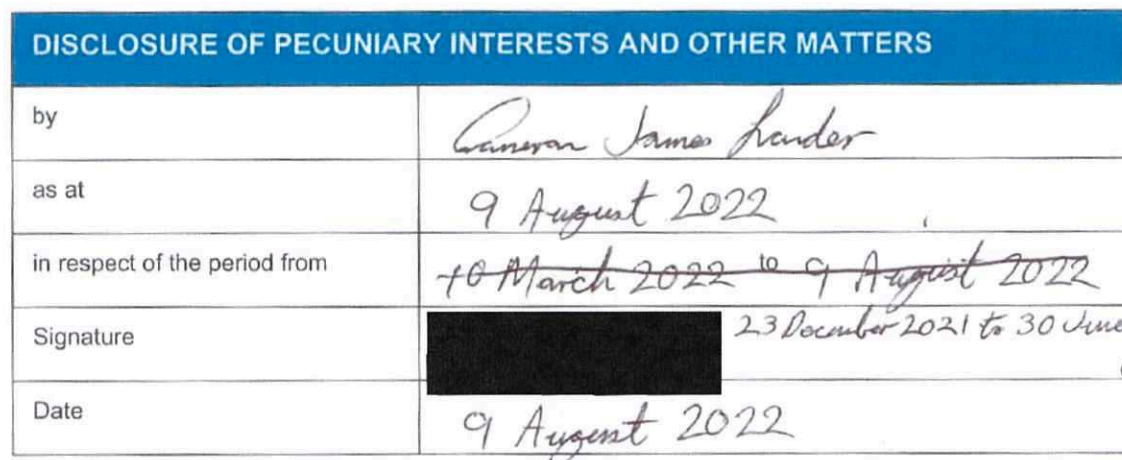 DISCLOSURE OF PECUNIARY INTERESTS AND OTHER MATTERS
by Cameron James Lander
as at 9 August 2022
in respect of the period from 10 March 2022 to 9 August 2022
Signature 23 December 2021 to 30 June
Date 9 August 2022